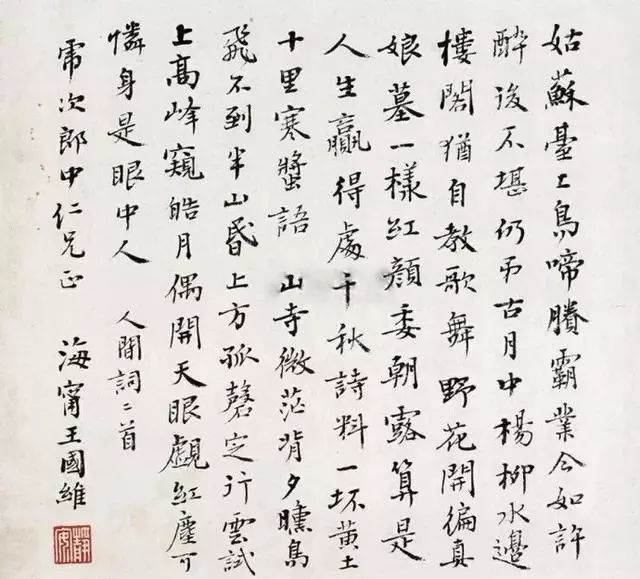 姑蘇臺上烏啼賸霸業今如許
醉後不堪仍弔古月中楊柳水邊
樓閣猶自教歌舞野花開徧真
娘墓一樣紅顏委朝露算是
人生贏得處千秋詩料一坏黃土
十里寒螿語 山寺微茫背夕曛鳥
飛不到半山昏上方孤磬定行雲試
上高峰窺皓月偶開天眼覷紅塵可
憐身是眼中人 人間詞二首
次郎中仁兄正 海甯王國維
靜安